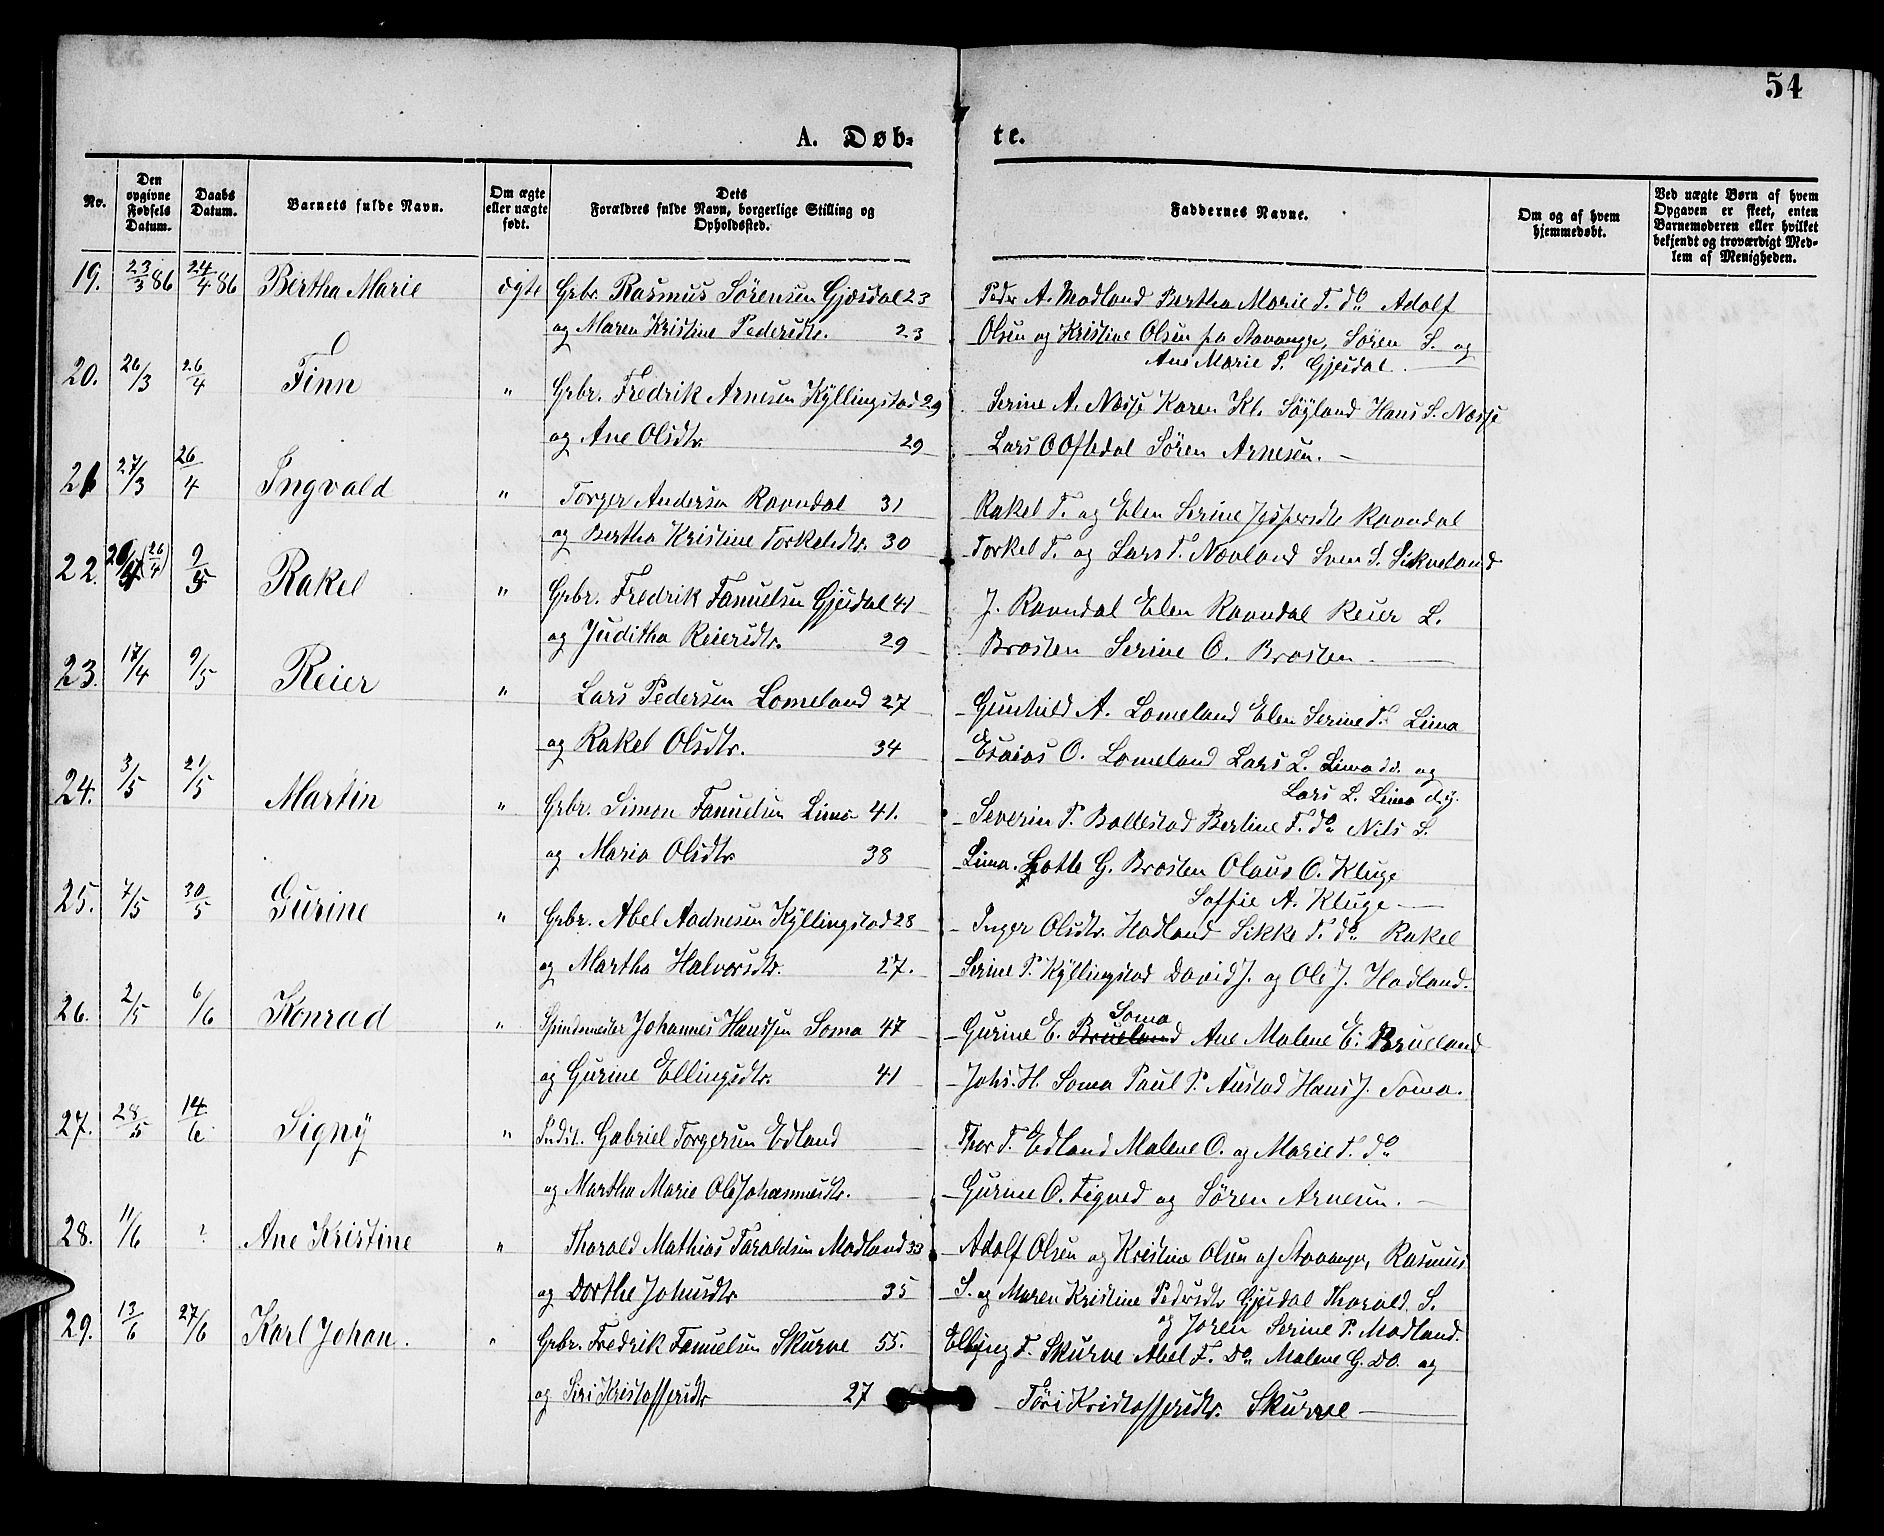 54
A. Døb-
te.
No.
Den opgivne Fødsels Datum.
Daabs Datum.
Barnets fulde Navn.
Om ægte eller uægte født.
Dets Forældres fulde Navn, borgerlige Stilling og Opholdssted.
Faddernes Navne.
Om og af hvem hjemmedøbt.
Ved uægte Børn af hvem Opgaven er skeet, enten Barnemoderen eller hvilket bekjendt og troværdigt Medlem af Menigheden.
19. 23/3 86 24/4 86 Bertha Marie ægte Grbr. Rasmus Sørensen Gjesdal 23 Peder A. Madland Bertha Marie T. do Adolf
og Maren Kristine Pedersdtr. 23 Olsen og Kristine Olsen fra Stavanger, Sören S. og
Ane Marie S. Gjesdal
20. 26/3 26/4 Finn " Grbr. Fredrik Arnesen Kyllingstad 29 Serine A. Næsse Karen Kl. Søyland Hans S. Næsse
og Ane Olsdtr. 29 Lars O Oftedal Sören Arnesen.
21 27/3 26/4 Ingvald " Torger Andersen Ravndal 31 Rakel T. og Elen Serine Jespersdtr Ravndal
og Bertha Kristine Torkelsdtr. 30 Torkel T. og Lars T. Nævland Sven S. Sikveland
22. (26/4) 9/5 Rakel " Grbr. Fredrik Tanuelsen Gjesdal 41 J. Ravndal Elen Ravndal Reier L.
og Juditha Reiersdtr. 29 Brasten Serine O. Brasten
23. 17/4 9/5 Reier " Lars Pedersen Lomeland 27 Gunhild A. Lomeland Elen Serine T. Lima
og Rakel Olsdtr. 34 Esaias O. Lomeland Lars L. Lima og
Lars L. Lima d.y.
24. 3/5 21/5 Martin " Grbr. Simon Tanuelsen Lima 41. Severin P. Ballestad Bertine T. do Nils S.
og Maria Olsdtr 38 Lima. Lotte G. Brasten Olaus O. Kluge
Soffie A. Kluge
25. 7/5 30/5 Gurine " Grbr. Abel Aadnesen Kyllingstad 28 Inger Olsdtr. Hadland Sikke T. do Rakel
og Martha Halvorsdtr. 27. Serine P. Kyllingstad David J. og Ole J. Hadland.
26. 2/5 6/6 Konrad " Spindemester Johannes Hanssen Soma 47 Gurine E. Brueland Soma Ane Malene E. Brueland
og Gurine Ellingsdtr. 41 Johs. H. Soma Paul P. Austad Hans J. Soma.
27. 28/5 14/6 Signy " Indst. Gabriel Torgersen Edland Thor T. Edland Malene O. og Marie T. do
og Martha Marie Ole Johannesdtr. Gurine O. Tigved og Sören Arnesen.
28. 11/6 ? Ane Kristine " Tharald Mathias Taraldsen Madland 33 Adolf Olsen og Kristine Olsen af Stavanger, Rasmus
og Dorthe Johnsdtr 35 S. og Maren Kristine Pedersdtr Gjesdal Tharald S.
og Joren Serine P. Madland.
29. 13/6 27/6 Karl Johan. " Grbr. Fredrik Tanuelsen Skurve 55. Elling T. Skurve Abel F. Do Malene G. Do. og
og Siri Kristoffersdtr 27 Töri Kristoffersdtr. Skurve